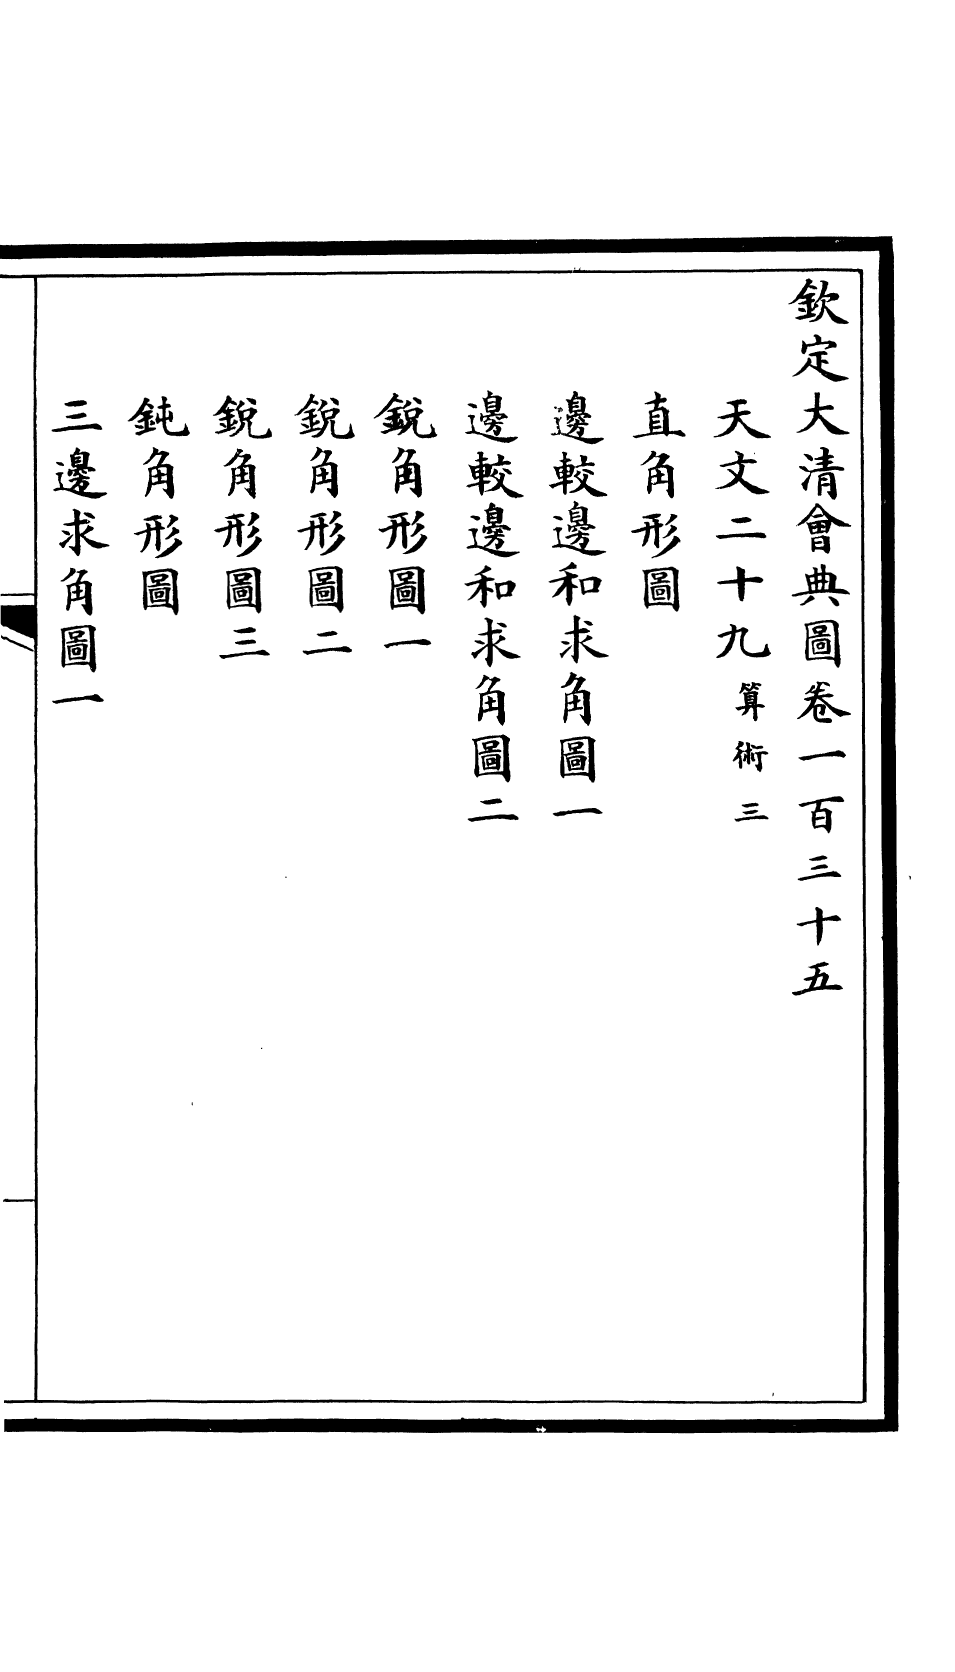 欽定大清會典圖卷一百三十五
天文二十九算術三
直角形圖
邊較邊和求角圖一
邊較邊和求角圖二
銳角形圖一
銳角形圖二
銳角形圖三
鈍角形圖
三邊求角圖一